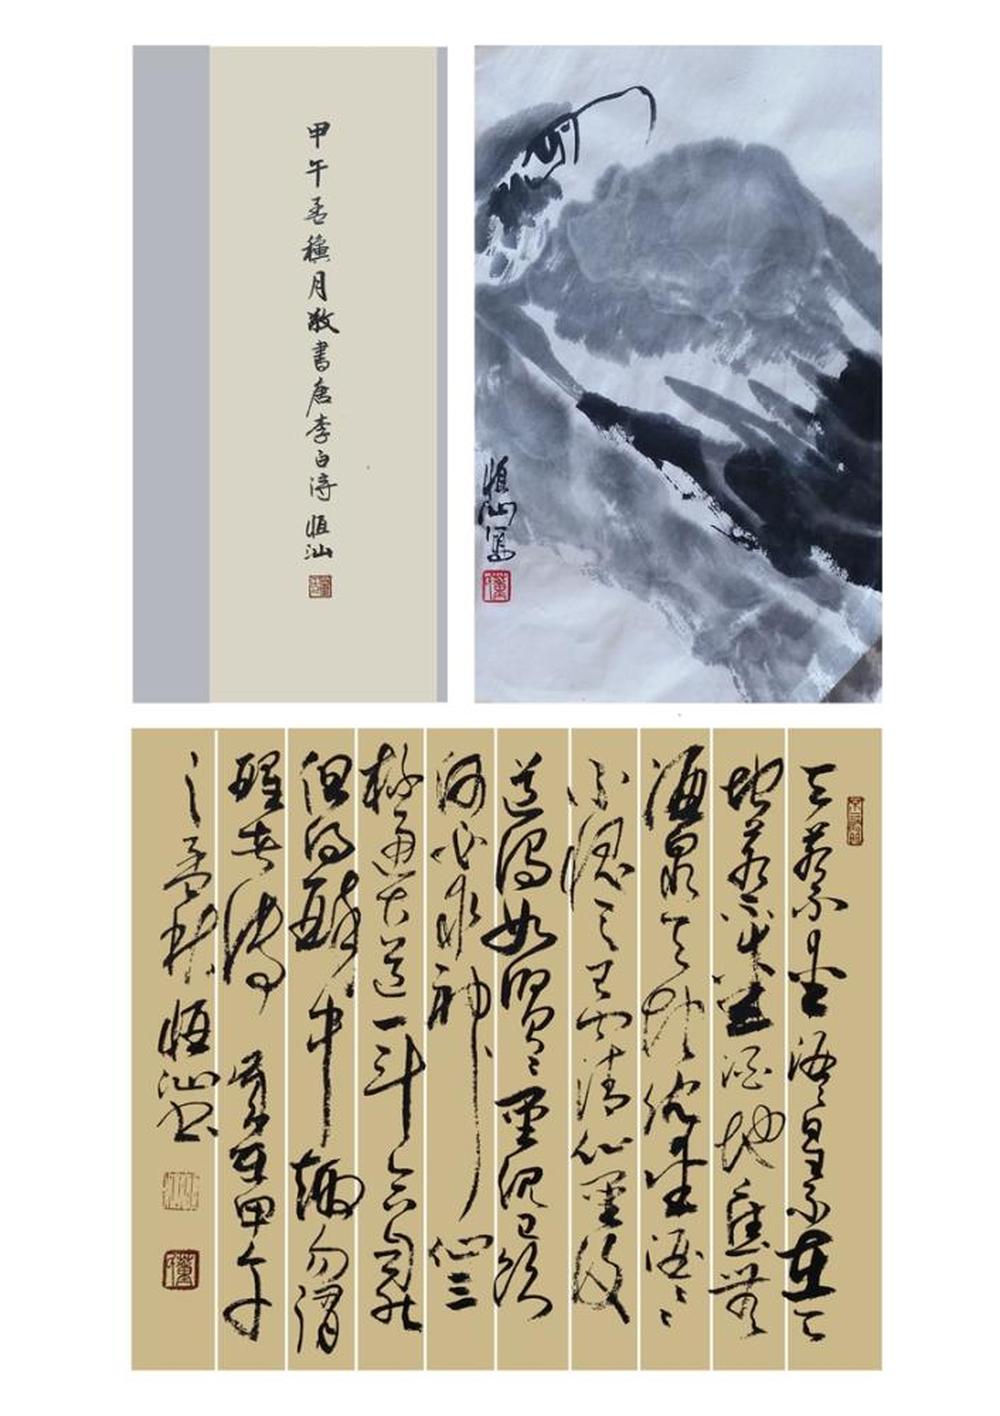 甲午孟穐月敬書唐李白诗 恒汕
恒汕寫
天若不愛酒〻星不在天
地若不愛酒地應無
酒泉天地既愛酒〻
不愧天已聞清比聖復
道濁如賢〻聖既已飲
何必求神仙三
杯通大道一斗合自然
但得醉中趣勿謂
醒者傳 歲在甲午
之孟秋 恒汕書